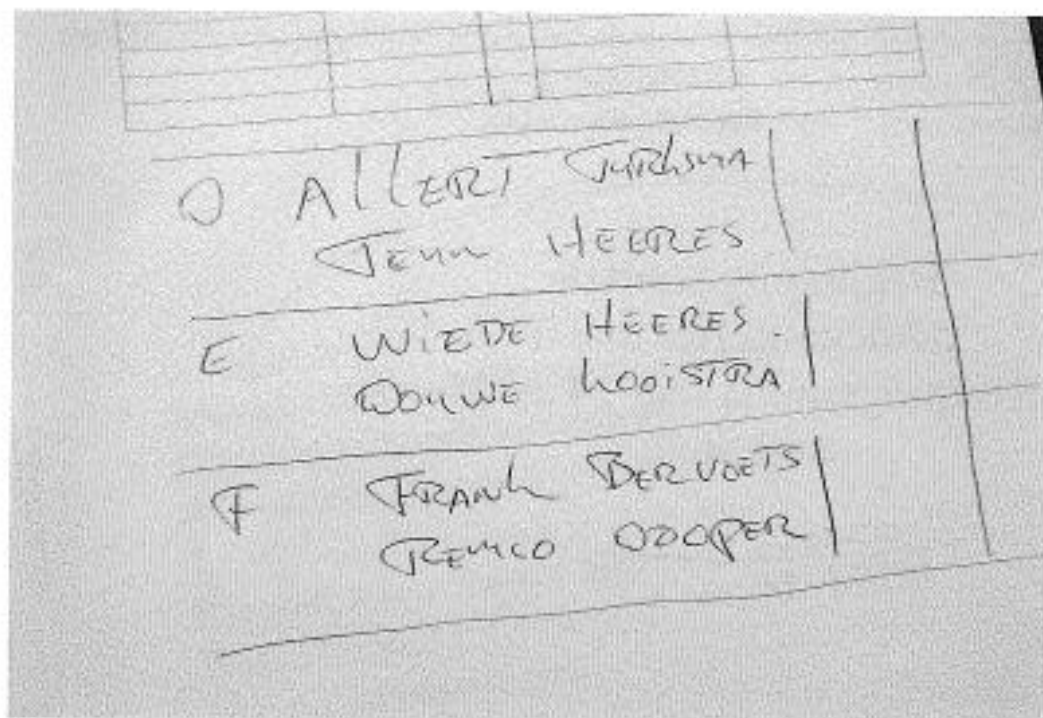 D ALLERT TURKSMA
TEUN HEERES
E WIEDE HEERES.
DOUWE KOOISTRA
F FRANK BERVOETS
REMCO